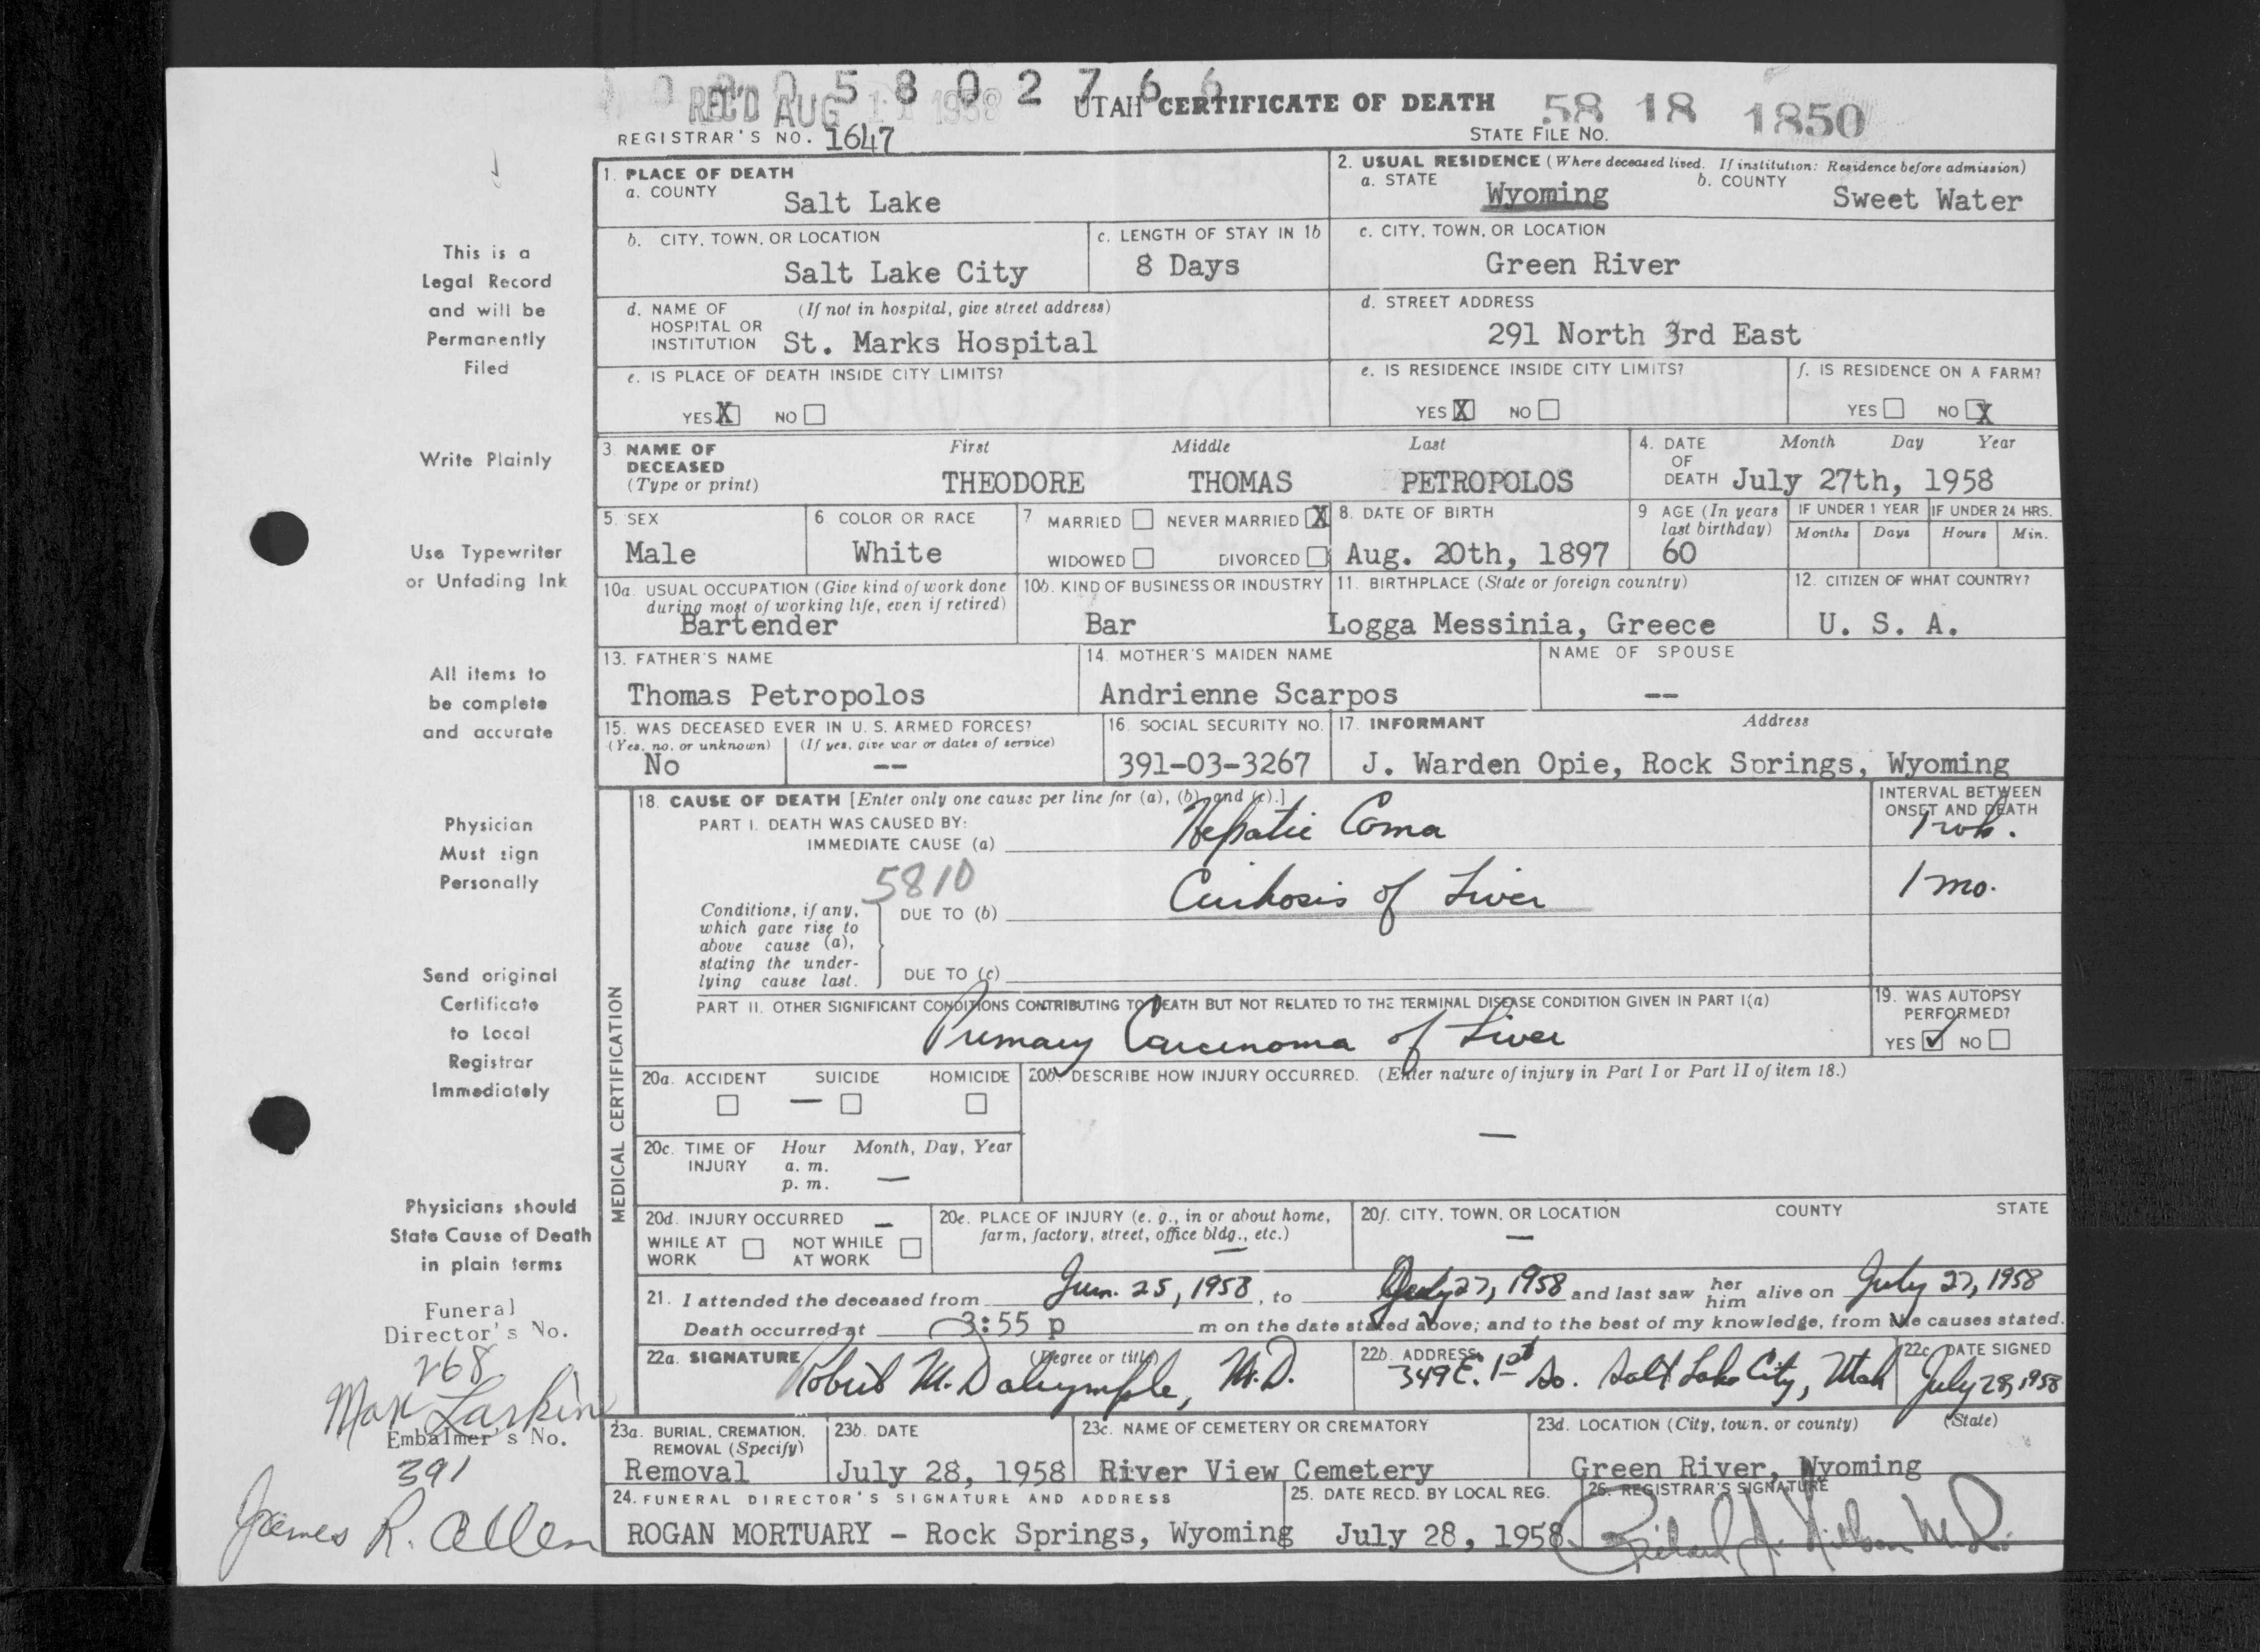 0 0 2 0 5 8 0 2 7 6 6
REC'D AUG 11 1958 UTAH CERTIFICATE OF DEATH 58 18 1850
REGISTRAR'S NO. 1647 STATE FILE NO.
1. PLACE OF DEATH
a. COUNTY Salt Lake
2. USUAL RESIDENCE (Where deceased lived. If institution: Residence before admission)
a. STATE Wyoming b. COUNTY Sweet Water
b. CITY, TOWN, OR LOCATION Salt Lake City
c. LENGTH OF STAY IN 1b 8 Days
c. CITY, TOWN, OR LOCATION Green River
d. NAME OF HOSPITAL OR INSTITUTION (If not in hospital, give street address)
St. Marks Hospital
d. STREET ADDRESS
291 North 3rd East
e. IS PLACE OF DEATH INSIDE CITY LIMITS?
YES X NO
e. IS RESIDENCE INSIDE CITY LIMITS?
YES X NO
f. IS RESIDENCE ON A FARM?
YES NO X
3. NAME OF DECEASED (Type or print)
First Middle Last
THEODORE THOMAS PETROPOLOS
4. DATE OF DEATH Month Day Year
July 27th, 1958
5. SEX Male
6 COLOR OR RACE White
7 MARRIED NEVER MARRIED X
WIDOWED DIVORCED
8. DATE OF BIRTH
Aug. 20th, 1897
9 AGE (In years last birthday) 60
IF UNDER 1 YEAR Months Days
IF UNDER 24 HRS. Hours Min.
10a. USUAL OCCUPATION (Give kind of work done during most of working life, even if retired)
Bartender
10b. KIND OF BUSINESS OR INDUSTRY
Bar
11. BIRTHPLACE (State or foreign country)
Logga Messinia, Greece
12. CITIZEN OF WHAT COUNTRY?
U. S. A.
13. FATHER'S NAME
Thomas Petropolos
14. MOTHER'S MAIDEN NAME
Andrienne Scarpos
NAME OF SPOUSE
--
15. WAS DECEASED EVER IN U. S. ARMED FORCES?
(Yes, no, or unknown) (If yes, give war or dates of service)
No --
16. SOCIAL SECURITY NO.
391-03-3267
17. INFORMANT Address
J. Warden Opie, Rock Springs, Wyoming
MEDICAL CERTIFICATION
18. CAUSE OF DEATH [Enter only one cause per line for (a), (b), and (c).]
INTERVAL BETWEEN ONSET AND DEATH
PART I. DEATH WAS CAUSED BY:
IMMEDIATE CAUSE (a) Hepatic Coma 1 wk.
5810
Conditions, if any, which gave rise to above cause (a), stating the underlying cause last.
DUE TO (b) Cirrhosis of Liver 1 mo.
DUE TO (c)
PART II. OTHER SIGNIFICANT CONDITIONS CONTRIBUTING TO DEATH BUT NOT RELATED TO THE TERMINAL DISEASE CONDITION GIVEN IN PART I(a)
Primary Carcinoma of Liver
19. WAS AUTOPSY PERFORMED?
YES ✓ NO
20a. ACCIDENT SUICIDE HOMICIDE
—
20b. DESCRIBE HOW INJURY OCCURRED. (Enter nature of injury in Part I or Part II of item 18.)
—
20c. TIME OF INJURY Hour Month, Day, Year
a. m.
p. m. —
20d. INJURY OCCURRED —
WHILE AT WORK NOT WHILE AT WORK
20e. PLACE OF INJURY (e. g., in or about home, farm, factory, street, office bldg., etc.)
—
20f. CITY, TOWN, OR LOCATION COUNTY STATE
—
21. I attended the deceased from Jun. 25, 1958, to July 27, 1958 and last saw her him alive on July 27, 1958
Death occurred at 3:55 p m on the date stated above; and to the best of my knowledge, from the causes stated.
22a. SIGNATURE (Degree or title)
Robert M. Dalrymple, M.D.
22b. ADDRESS
349 E. 1st So. Salt Lake City, Utah
22c. DATE SIGNED
July 28, 1958
23a. BURIAL, CREMATION, REMOVAL (Specify)
Removal
23b. DATE
July 28, 1958
23c. NAME OF CEMETERY OR CREMATORY
River View Cemetery
23d. LOCATION (City, town, or county) (State)
Green River, Wyoming
24. FUNERAL DIRECTOR'S SIGNATURE AND ADDRESS
ROGAN MORTUARY - Rock Springs, Wyoming
25. DATE RECD. BY LOCAL REG.
July 28, 1958.
26. REGISTRAR'S SIGNATURE
Richard
This is a
Legal Record
and will be
Permanently
Filed
Write Plainly
Use Typewriter
or Unfading Ink
All items to
be complete
and accurate
Physician
Must sign
Personally
Send original
Certificate
to Local
Registrar
Immediately
Physicians should
State Cause of Death
in plain terms
Funeral
Director's No.
268
Max Larkin
Embalmer's No.
391
James R. Allen